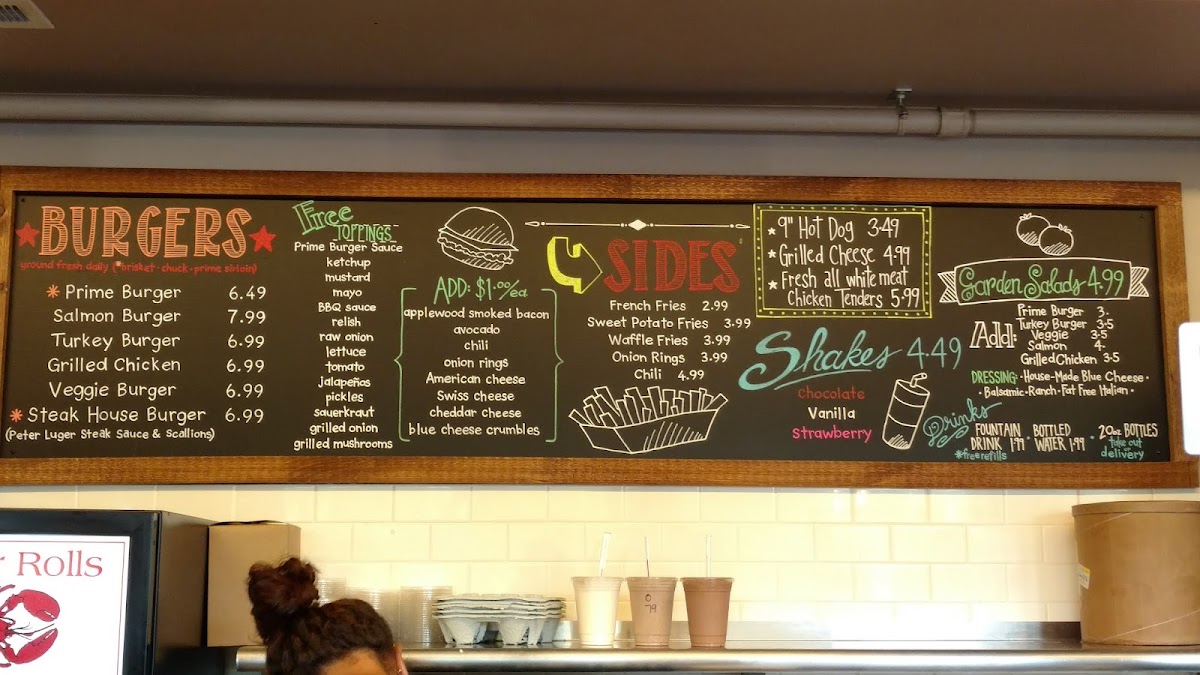 BURGERS
ground fresh daily (*brisket • chuck • prime sirloin)
* Prime Burger 6.49
Salmon Burger 7.99
Turkey Burger 6.99
Grilled Chicken 6.99
Veggie Burger 6.99
* Steak House Burger 6.99
(Peter Luger Steak Sauce & Scallions)
Free
TOPPINGS
Prime Burger Sauce
ketchup
mustard
mayo
BBQ sauce
relish
raw onion
lettuce
tomato
Jalapeños
pickles
sauerkraut
grilled onion
grilled mushrooms
ADD: $1.00/ea
applewood smoked bacon
avocado
chili
onion rings
American cheese
Swiss cheese
cheddar cheese
blue cheese crumbles
SIDES
French Fries 2.99
Sweet Potato Fries 3.99
Waffle Fries 3.99
Onion Rings 3.99
Chili 4.99
9" Hot Dog 3.49
Grilled Cheese 4.99
Fresh all white meat
Chicken Tenders 5.99
Shakes 4.49
chocolate
Vanilla
Strawberry
Garden Salads 4.99
Add:
Prime Burger 3.
Turkey Burger 3.5
Veggie 3.5
Salmon 4.
Grilled Chicken 3.5
DRESSING: • House-Made Blue Cheese •
• Balsamic • Ranch • Fat Free Italian •
Drinks
FOUNTAIN
DRINK 1.99
*free refills
BOTTLED
WATER 1.99
20oz BOTTLES
take out
or
delivery
r Rolls
79